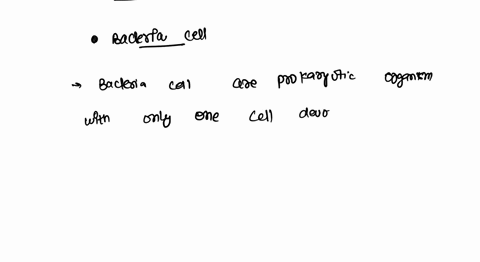 • Bacteria cell
→ Bacteria cell are prokaryotic organism
with only one cell devo